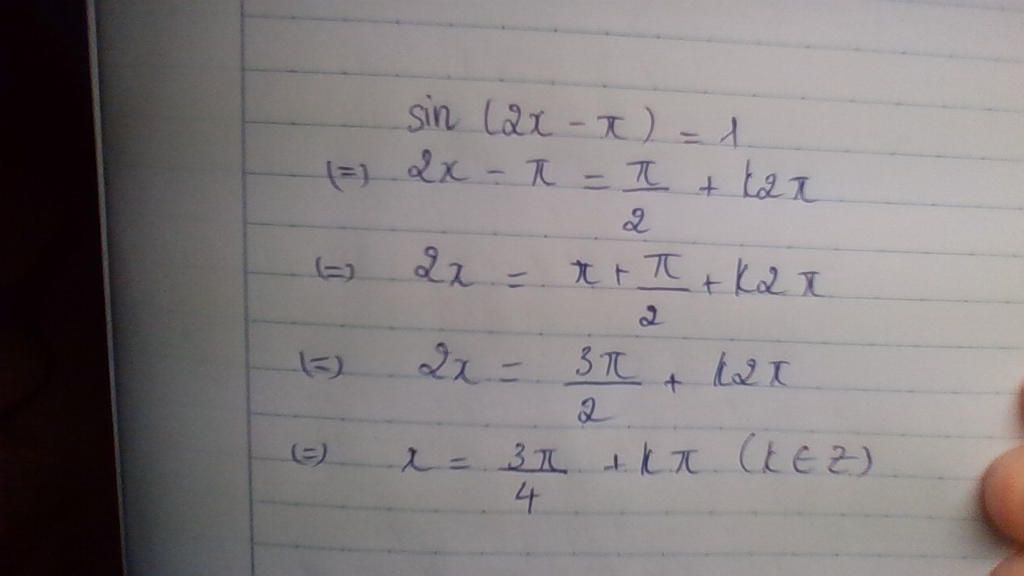 sin (2x - π) = 1
(=) 2x - π = π/2 + k2π
(=) 2x = π + π/2 + k2π
(=) 2x = 3π/2 + k2π
(=) x = 3π/4 + kπ (k ∈ Z)